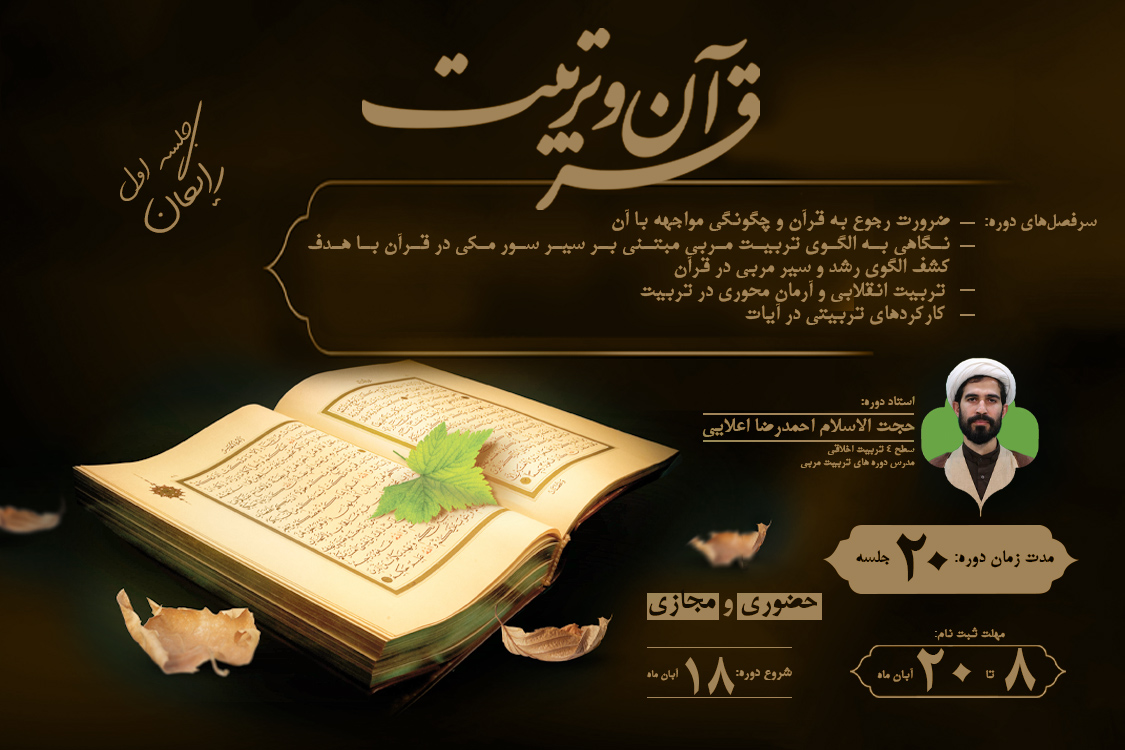 قرآن و تربیت
جلسه اول
رایگان
سرفصل‌های دوره:
– ضرورت رجوع به قرآن و چگونگی مواجهه با آن
– نگاهی به الگوی تربیت مربی مبتنی بر سیر سور مکی در قرآن با هدف
کشف الگوی رشد و سیر مربی در قرآن
– تربیت انقلابی و آرمان محوری در تربیت
– کارکردهای تربیتی در آیات
استاد دوره:
حجت الاسلام احمدرضا اعلایی
سطح ٤ تربیت اخلاقی
مدرس دوره های تربیت مربی
مدت زمان دوره: ۲۰ جلسه
حضوری و مجازی
مهلت ثبت نام:
۸ تا ۲۰ آبان ماه
شروع دوره: ۱۸ آبان ماه